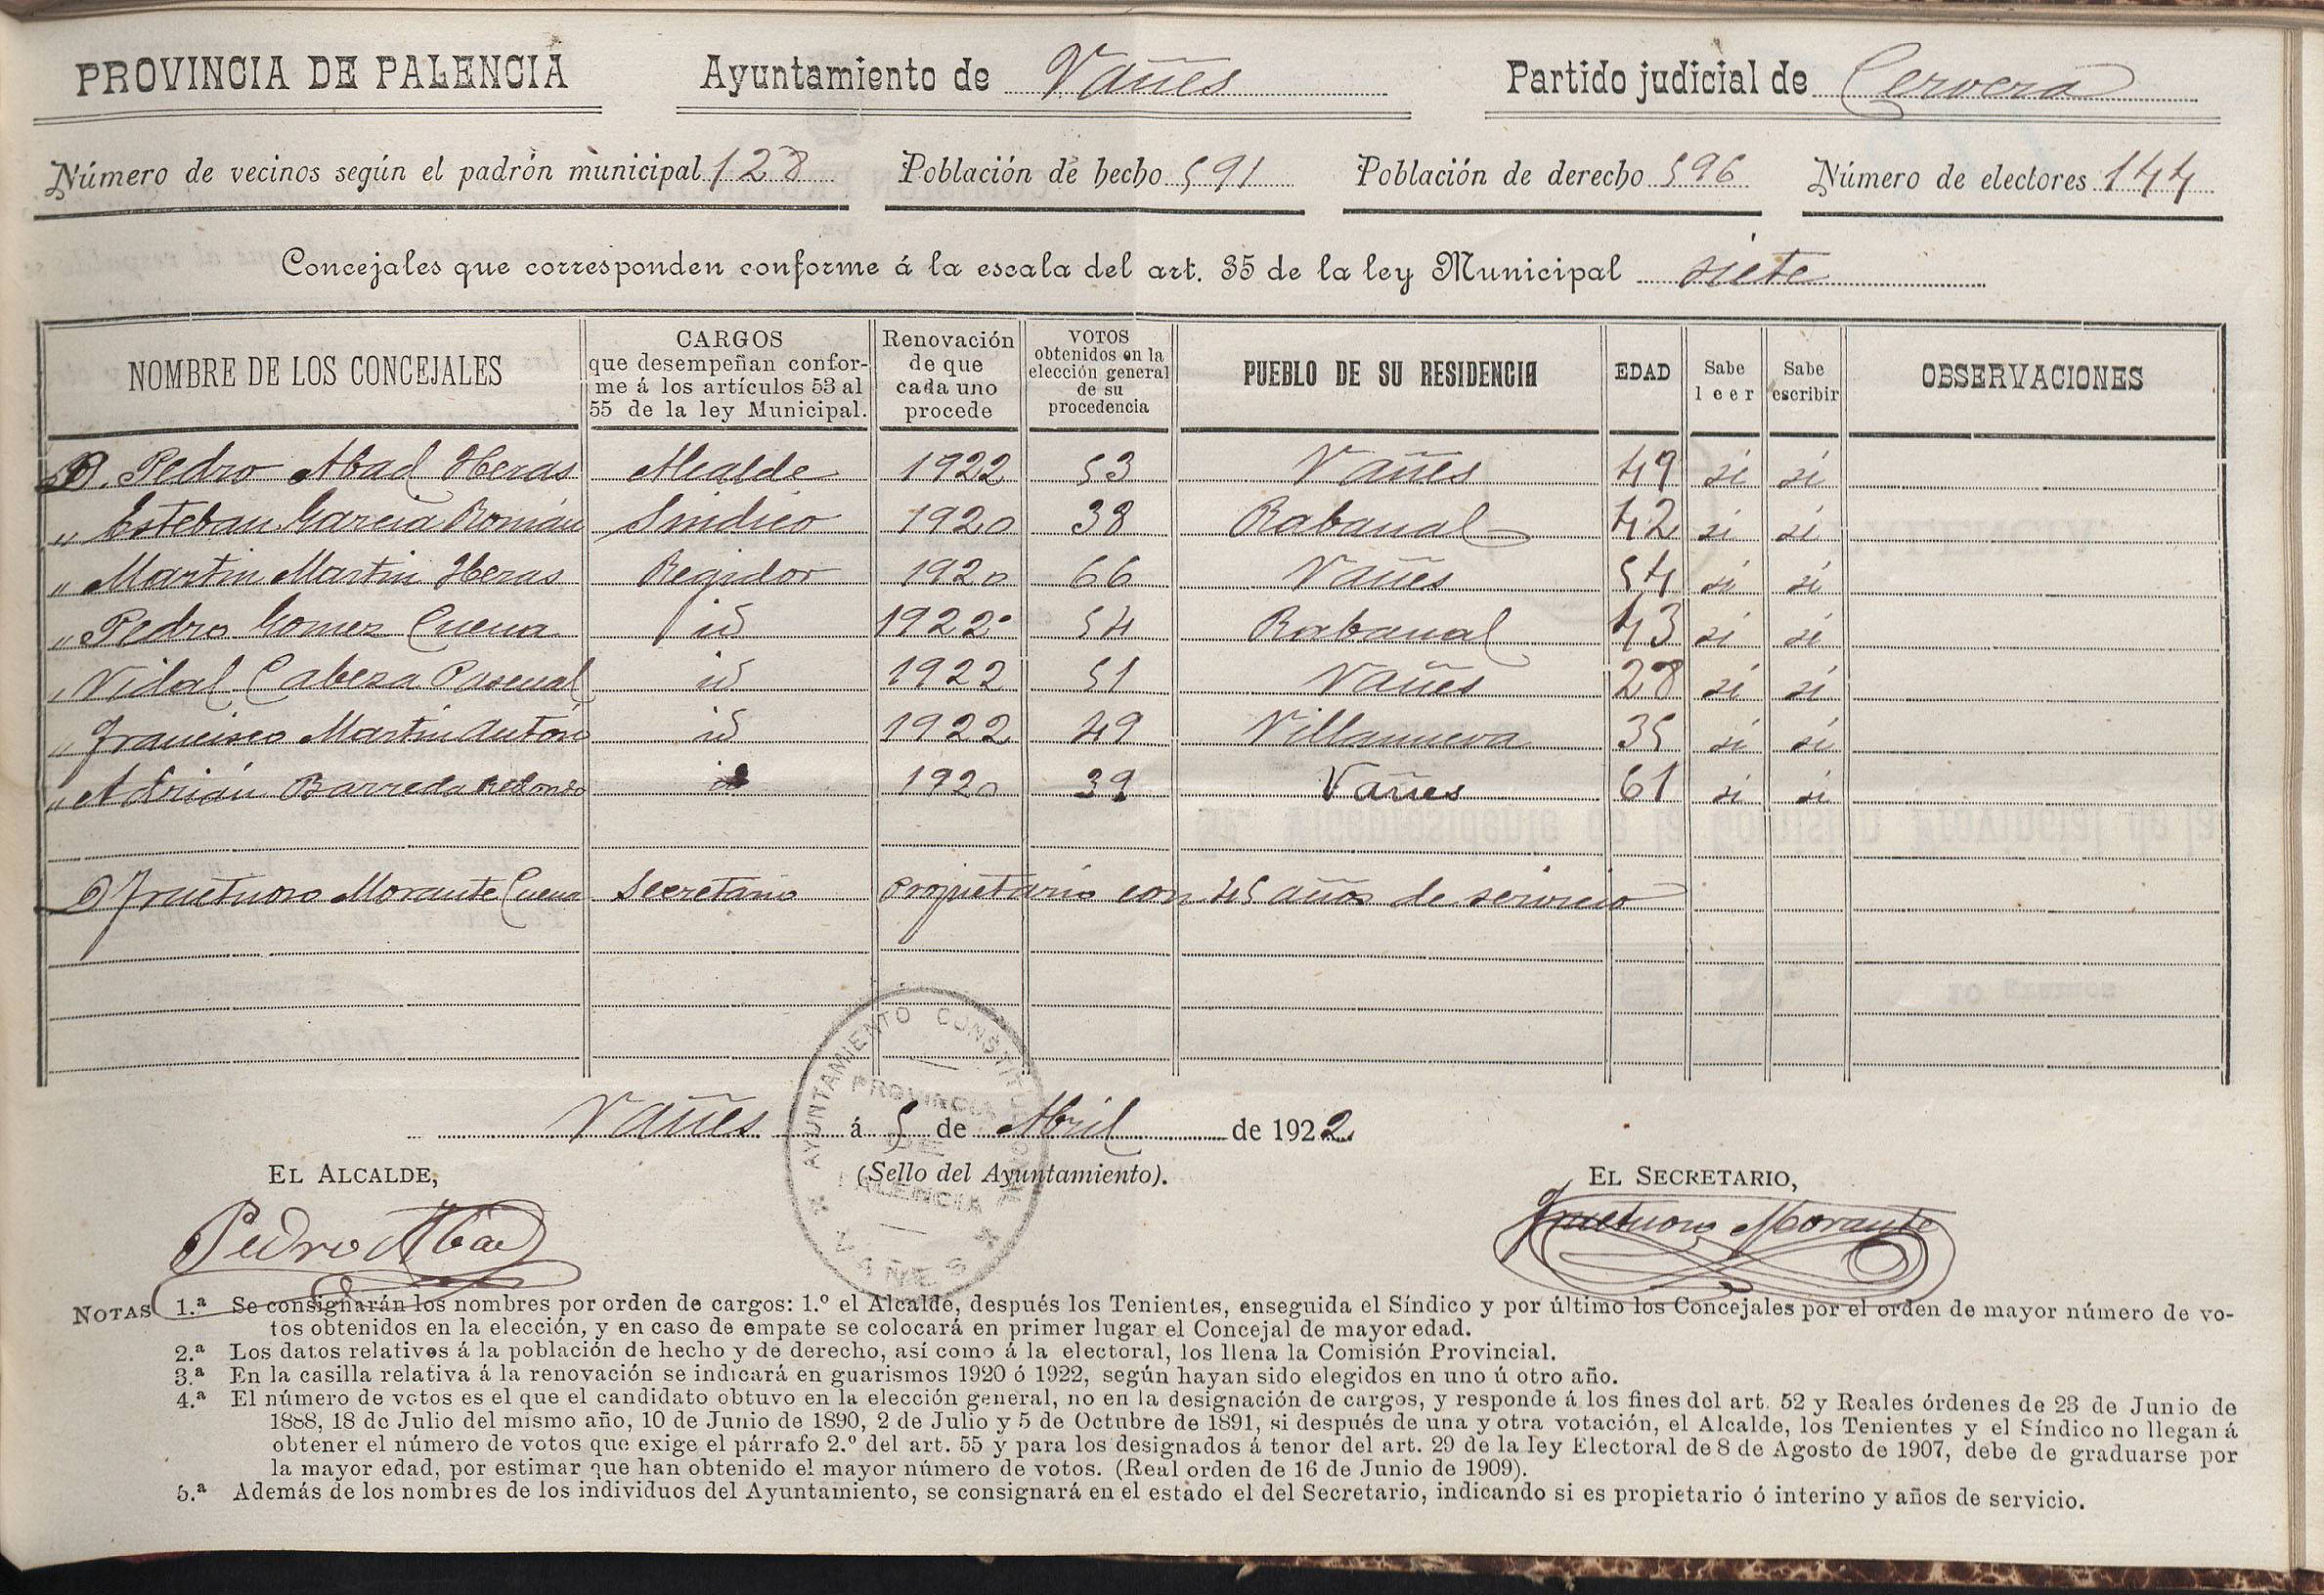 PROVINCIA DE PALENCIA Ayuntamiento de Vañes Partido judicial de Cervera
Número de vecinos según el padrón municipal 128 Población de hecho 591 Población de derecho 596 Número de electores 144
Concejales que corresponden conforme á la escala del art. 35 de la ley Municipal siete
NOMBRE DE LOS CONCEJALES
CARGOS
que desempeñan confor-
me á los artículos 53 al
55 de la ley Municipal.
Renovación
de que
cada uno
procede
VOTOS
obtenidos en la
elección general
de su
procedencia
PUEBLO DE SU RESIDENCIA
EDAD
Sabe
leer
Sabe
escribir
OBSERVACIONES
D. Pedro Abad Heras Alcalde 1922 53 Vañes 49 si si
" Esteban Garcia Román Sindico 1920 38 Rabanal 42 si si
" Martin Martin Heras Regidor 1920 66 Vañes 54 si si
" Pedro Gomez Cuena id 1922 54 Rabanal 43 si si
" Vidal Cabeza Pascual id 1922 51 Vañes 28 si si
" Francisco Martin Antón id 1922 49 Villanueva 35 si si
" Adrián Barreda Redondo id 1920 39 Vañes 61 si si
D Fructuoso Morante Cuena Secretario Propietario con 45 años de servicio
Vañes á 5 de Abril de 1922
AYUNTAMIENTO CONSTITUCIONAL
PROVINCIA
DE
PALENCIA
VAÑES
EL ALCALDE, (Sello del Ayuntamiento). EL SECRETARIO,
Pedro Abad Fructuoso Morante
NOTAS 1.ª Se consignarán los nombres por orden de cargos: 1.º el Alcalde, después los Tenientes, enseguida el Síndico y por último los Concejales por el orden de mayor número de vo-
tos obtenidos en la elección, y en caso de empate se colocará en primer lugar el Concejal de mayor edad.
2.ª Los datos relativos á la población de hecho y de derecho, así como á la electoral, los llena la Comisión Provincial.
3.ª En la casilla relativa á la renovación se indicará en guarismos 1920 ó 1922, según hayan sido elegidos en uno ú otro año.
4.ª El número de votos es el que el candidato obtuvo en la elección general, no en la designación de cargos, y responde á los fines del art. 52 y Reales órdenes de 23 de Junio de
1888, 18 de Julio del mismo año, 10 de Junio de 1890, 2 de Julio y 5 de Octubre de 1891, si después de una y otra votación, el Alcalde, los Tenientes y el Síndico no llegan á
obtener el número de votos que exige el párrafo 2.º del art. 55 y para los designados á tenor del art. 29 de la ley Electoral de 8 de Agosto de 1907, debe de graduarse por
la mayor edad, por estimar que han obtenido el mayor número de votos. (Real orden de 16 de Junio de 1909).
5.ª Además de los nombres de los individuos del Ayuntamiento, se consignará en el estado el del Secretario, indicando si es propietario ó interino y años de servicio.